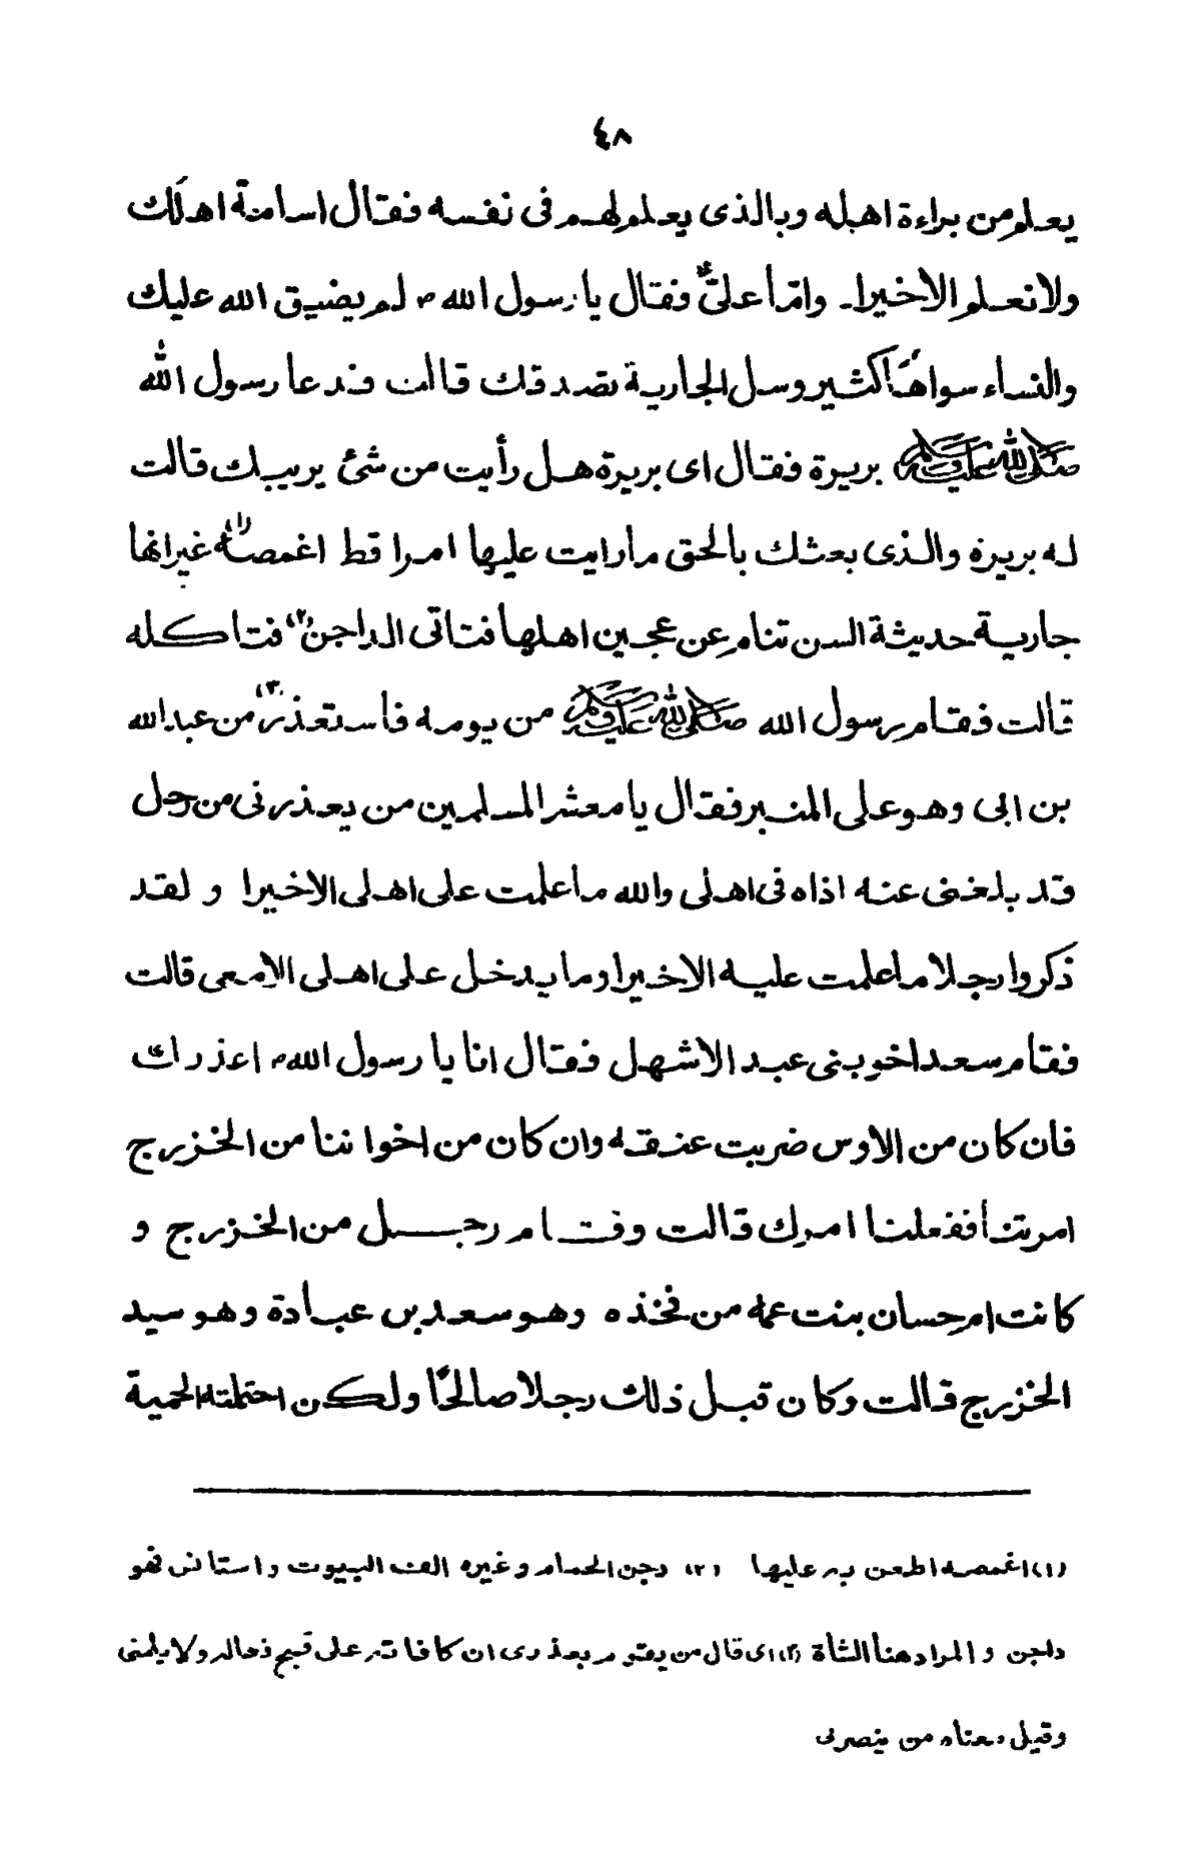 ٤٨
يعلم من براءة اهله وبالذى يعلم لهم فى نفسه فقال اسامة اهلك
ولا نعلم الا خيرا۔ وامّا علىؓ فقال يا رسول الله ؐ لم يضيق الله عليك
والنساء سواها كثير وسل الجارية تصدقك قالت فدعا رسول الله
ﷺ بريرة فقال اى بريرة هل رأيت من شئ يريبك قالت
له بريرة والذى بعثك بالحق ما رايت عليها امرا قط اغمصه(١) غير انها
جارية حديثة السن تنام عن عجين اهلها فتاتى الداجن(٢) فتاكله
قالت فقام رسول الله ﷺ من يومه فاستعذر(٣) من عبد الله
بن ابى وهو على المنبر فقال يا معشر المسلمين من يعذرنى من رجل
قد بلغنى عنه اذاه فى اهلى والله ما علمت على اهلى الا خيرا و لقد
ذكروا رجلا ما علمت عليه الا خيرا وما يدخل على اهلى الا معى قالت
فقام سعد اخو بنى عبد الاشهل فقال انا يا رسول الله ؐ اعذرك
فان كان من الاوس ضربت عنقه وان كان من اخواننا من الخزرج
امرتنا ففعلنا امرك قالت وقام رجل من الخزرج و
كانت ام حسان بنت عمه من فخذه وهو سعد بن عبادة وهو سيد
الخزرج قالت وكان قبل ذلك رجلا صالحًا ولكن احتملته الحمية
(١) اغمصه اطعن به عليها (٢) دجن الحمام وغيره الف البيوت واستانس فهو
داجن والمراد هنا الشاة (٣) اى قال من يقوم بعذرى ان كافاته على قبيح فعاله ولا يلمنى
وقيل معناه من ينصرنى